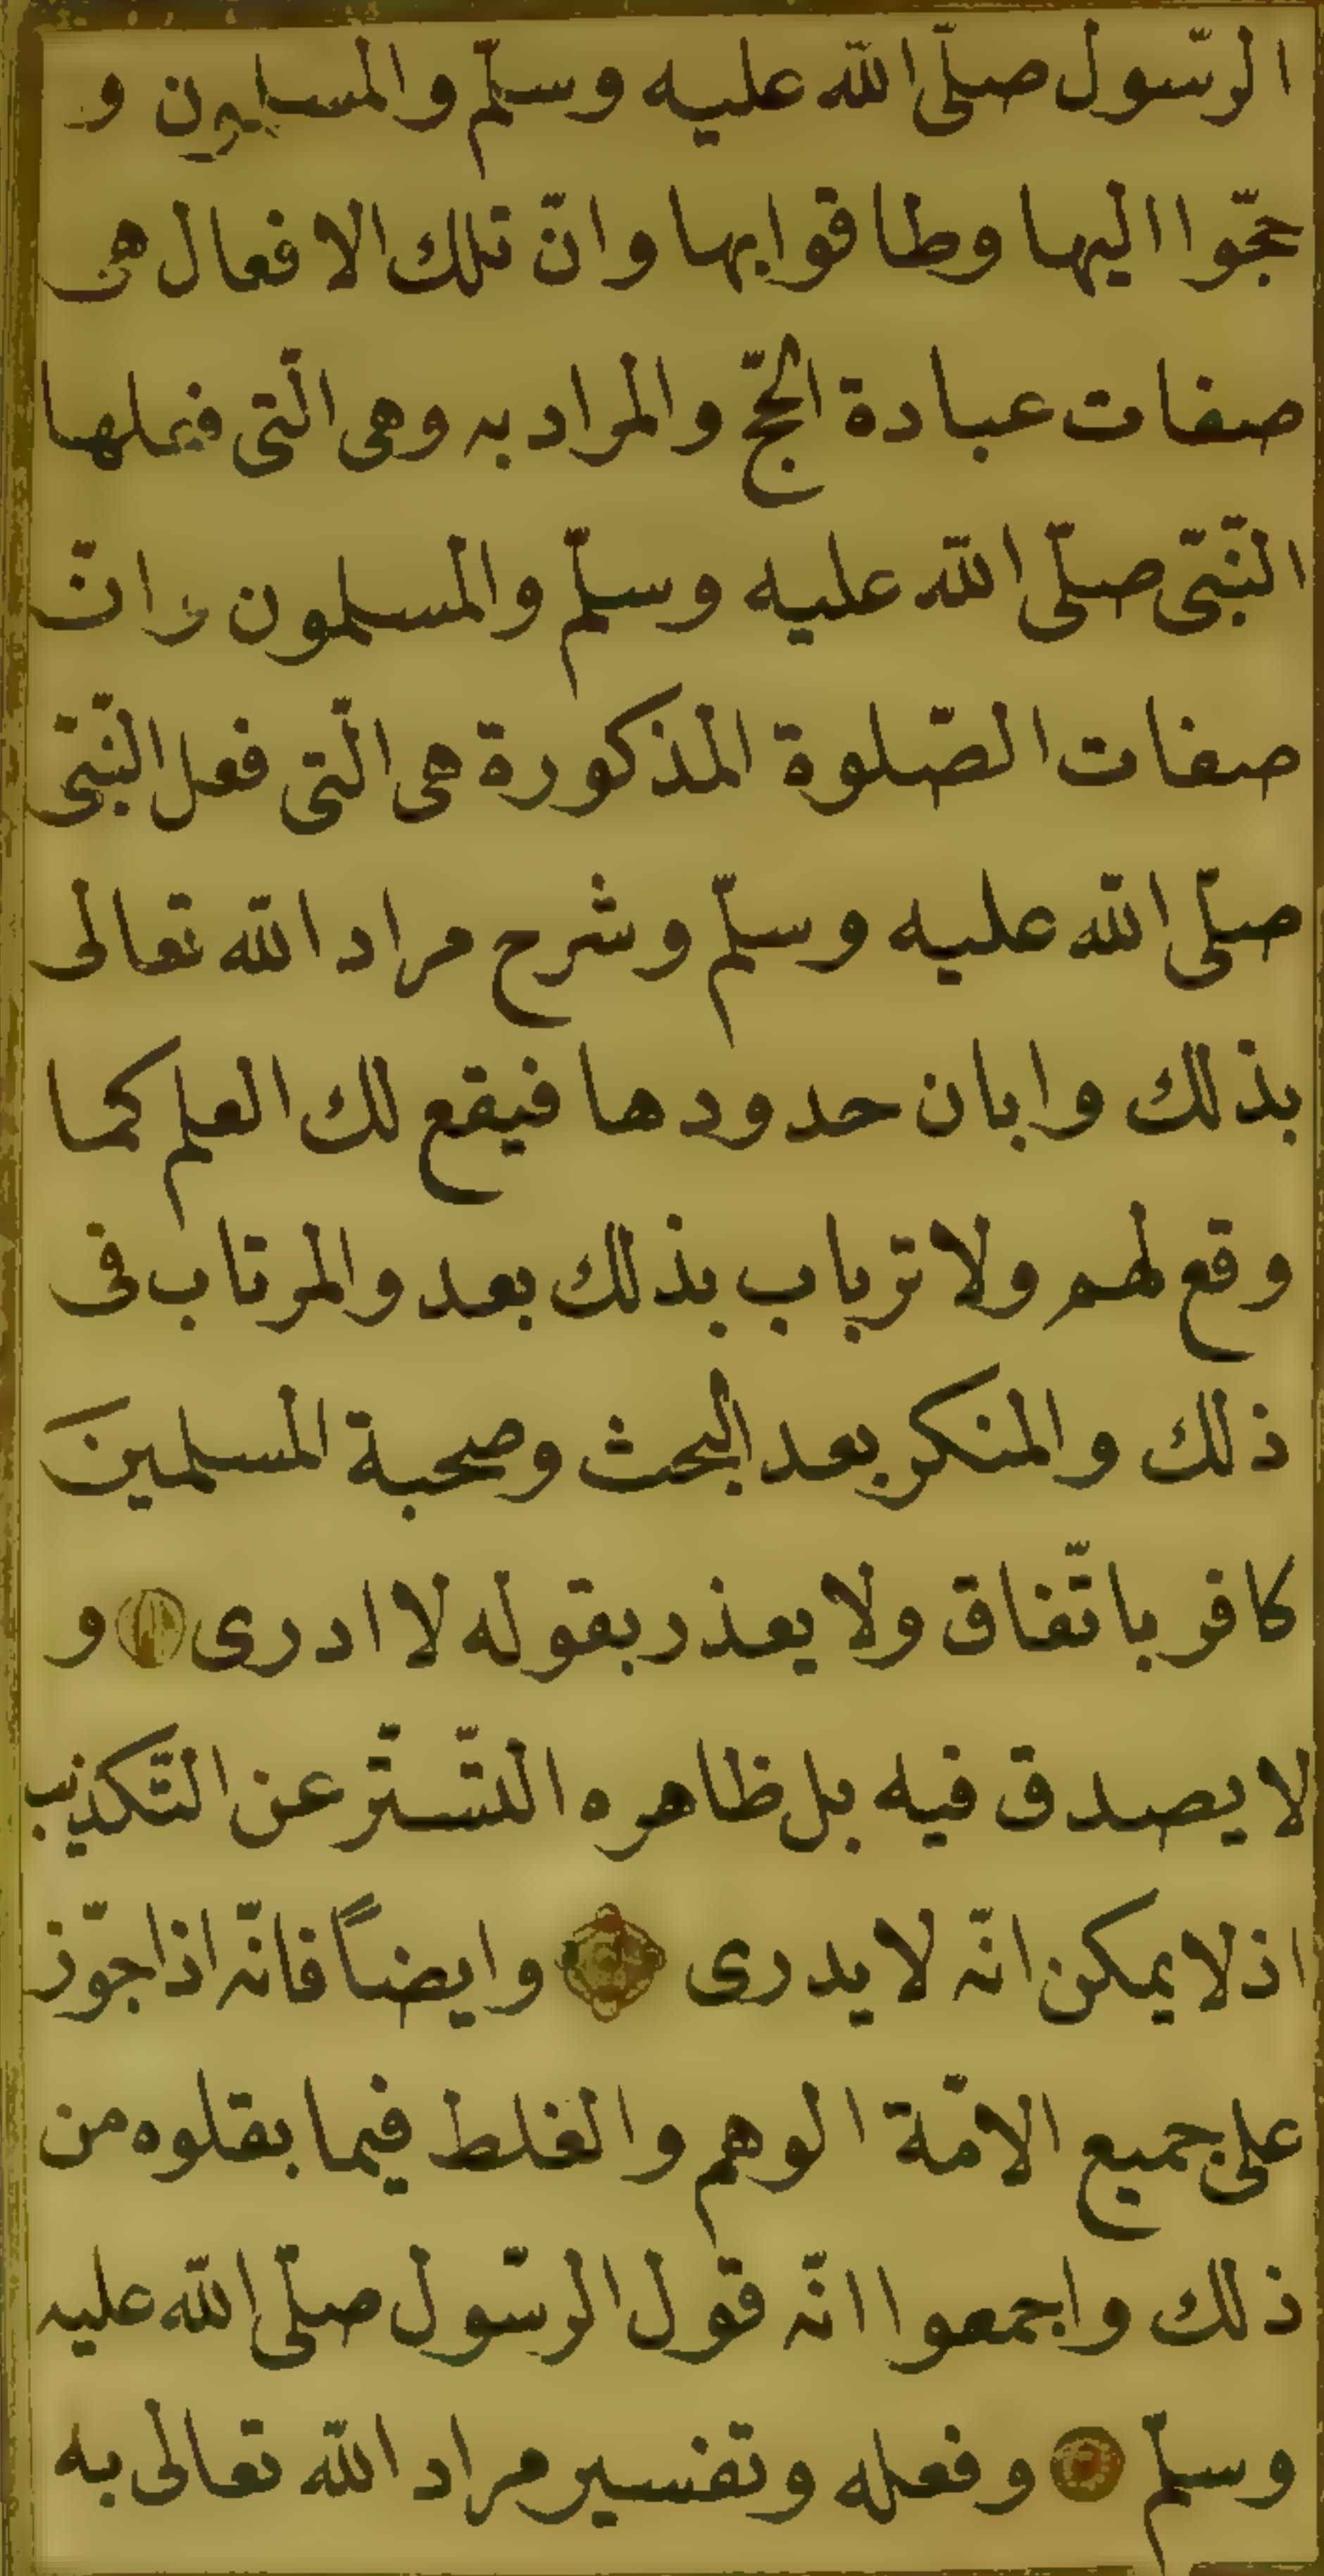 الرّسول صلّى الله عليه وسلّم والمسلمون و
حجّوا اليها وطافوا بها وانّ تلك الافعال هى
صفات عبادة الحجّ والمراد به وهى الّتى فعلها
النّبىّ صلّى الله عليه وسلّم والمسلمون وانّ
صفات الصّلوة المذكورة هى الّتى فعل النّبىّ
صلّى الله عليه وسلّم وشرح مراد الله تعالى
بذلك وابان حدودها فيقع لك العلم كما
وقع لهم ولا ترباب بذلك بعد والمرتاب فى
ذلك والمنكر بعد البحث وصحبة المسلمينَ
كافر باتّفاق ولا يعذر بقوله لا ادرى و
لا يصدق فيه بل ظاهره التّستّر عن التّكذيب
اذ لا يمكن انّه لا يدرى وايضاً فانّه اذا جوّز
على جميع الامّة الوهم والغلط فيما نقلوه من
ذلك واجمعوا انّه قول الرّسول صلّى الله عليه
وسلّم وفعله وتفسير مراد الله تعالى به